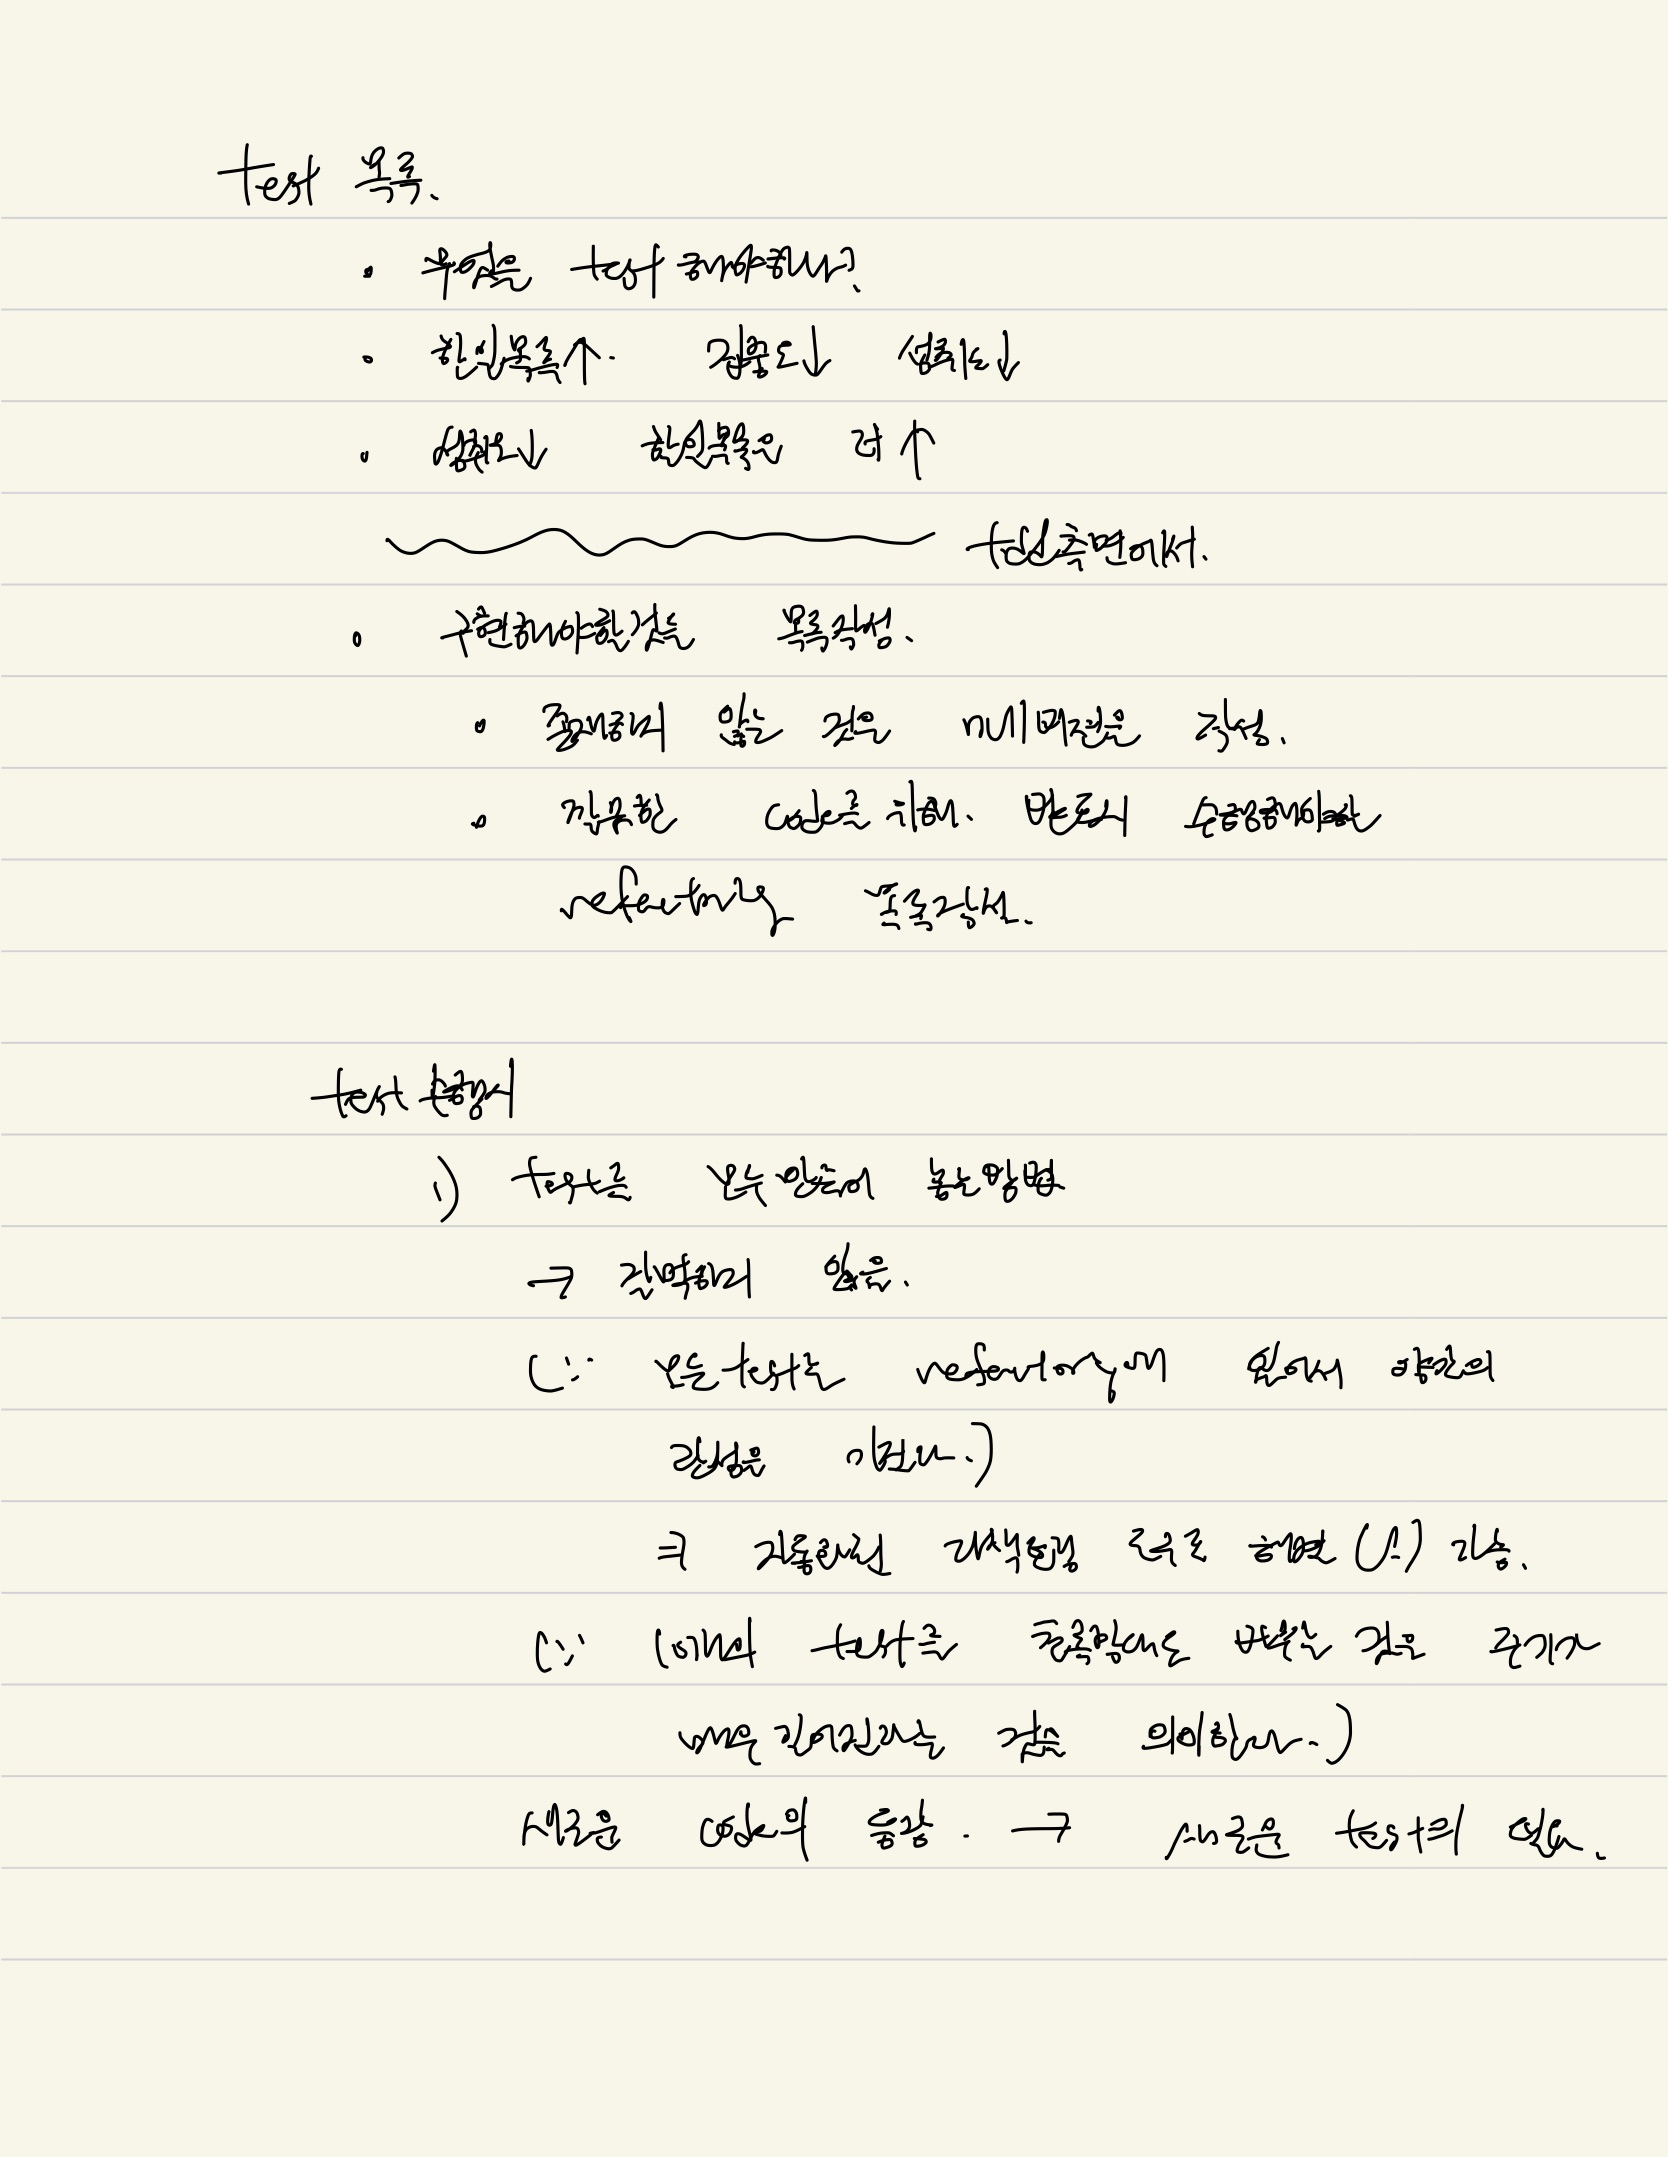 test 목록.
• 무엇을 test 해야하나?
• 할일목록↑. 집중도↓ 성취도↓
• 성취도↓ 할일목록은 더↑
test측면에서.
• 구현해야할것들 목록작성.
• 존재하지 않는 것은 null버전을 작성.
• 깔끔한 code를 위해. 반드시 수행해야할
refactoring 목록작성.
test 수행시
1) test를 모두 만들어 놓는방법
→ 간백하지 않음.
(∵ 모든test는 refactoring에 있어서 약간의
관성을 가진다.)
⇒ 자동화된 도구로 해결 (!) 가능.
(∵ 10개의 test를 바꾸는 것은 주기가
매우 길어진다는 것을 의미한다.)
새로운 code의 등장. → 새로운 test의 필요.